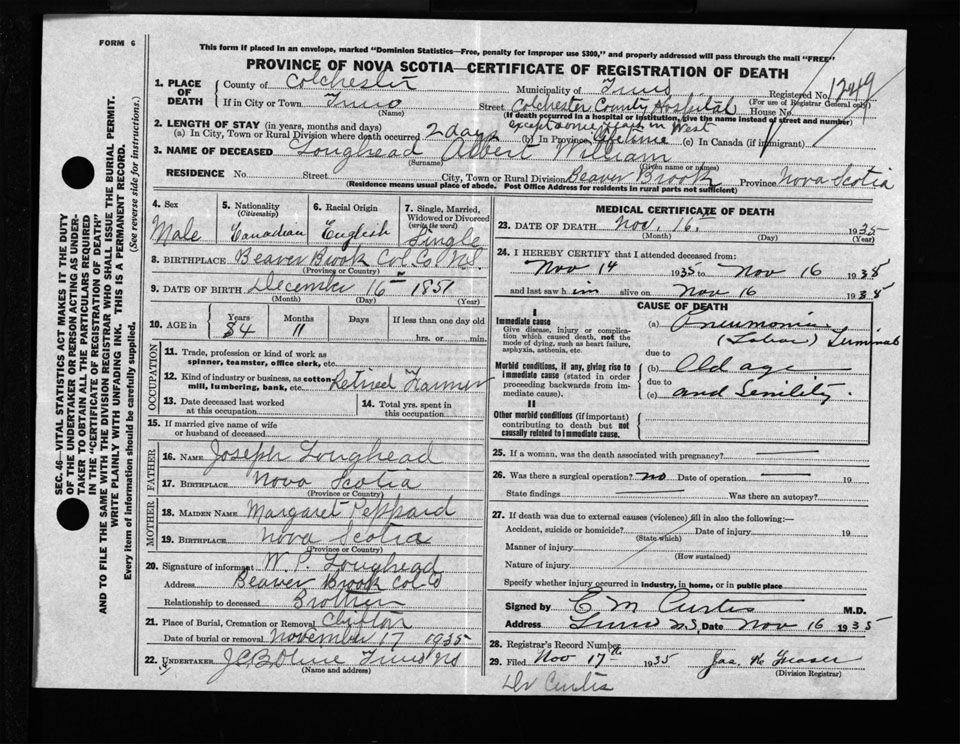 FORM 6
This form if placed in an envelope, marked "Dominion Statistics—Free, penalty for improper use $300," and properly addressed will pass through the mail "FREE"
PROVINCE OF NOVA SCOTIA—CERTIFICATE OF REGISTRATION OF DEATH
1. PLACE OF DEATH
County of Colchester
Municipality of Truro
Registered No. 1249
(For use of Registrar General only)
If in City or Town Truro
(Name)
Street Colchester County Hospital House No.
(If death occurred in a hospital or institution, give the name instead of street and number)
2. LENGTH OF STAY (in years, months and days)
except some years in West
(a) In City, Town or Rural Division where death occurred 2 days (b) In Province Lifetime (c) In Canada (if immigrant)
3. NAME OF DECEASED Loughead Albert William
(Surname) (Given name or names)
RESIDENCE No. Street City, Town or Rural Division Beaver Brook Province Nova Scotia
(Residence means usual place of abode. Post Office Address for residents in rural parts not sufficient)
4. Sex
Male
5. Nationality
(Citizenship)
Canadian
6. Racial Origin
English
7. Single, Married, Widowed or Divorced
(write the word)
Single
8. BIRTHPLACE Beaver Brook Col. Co. N.S.
(Province or Country)
9. DATE OF BIRTH December 16 1851
(Month) (Day) (Year)
10. AGE in
Years Months Days If less than one day old
84 11 hrs. or min.
OCCUPATION
11. Trade, profession or kind of work as spinner, teamster, office clerk, etc.
12. Kind of industry or business, as cotton mill, lumbering, bank, etc. Retired Farmer
13. Date deceased last worked at this occupation
14. Total yrs. spent in this occupation
15. If married give name of wife or husband of deceased
FATHER
16. NAME Joseph Loughead
17. BIRTHPLACE Nova Scotia
(Province or Country)
MOTHER
18. MAIDEN NAME Margaret Peppard
19. BIRTHPLACE Nova Scotia
(Province or Country)
20. Signature of informant W. P. Loughead
Address Beaver Brook Col Co
Relationship to deceased Brother
21. Place of Burial, Cremation or Removal Clifton
Date of burial or removal November 17 1935
22. Undertaker Truro NS
(Name and address)
MEDICAL CERTIFICATE OF DEATH
23. DATE OF DEATH Nov. 16 1935
(Month) (Day) (Year)
24. I HEREBY CERTIFY that I attended deceased from:
Nov 14 1935 to Nov 16 1935
and last saw h im alive on Nov 16 1935
CAUSE OF DEATH
I
Immediate cause
Give disease, injury or complication which caused death, not the mode of dying, such as heart failure, asphyxia, asthenia, etc.
(a) Pneumonia
(Lobar) Terminal
Morbid conditions, if any, giving rise to immediate cause (stated in order proceeding backwards from immediate cause).
due to
(b) Old age
due to
(c) and Senility.
II
Other morbid conditions (if important) contributing to death but not causally related to immediate cause.
25. If a woman, was the death associated with pregnancy?
26. Was there a surgical operation? no Date of operation 19
State findings Was there an autopsy?
27. If death was due to external causes (violence) fill in also the following:—
Accident, suicide or homicide? Date of injury 19
(State which)
Manner of injury
(How sustained)
Nature of injury
Specify whether injury occurred in industry, in home, or in public place
Signed by C M Curtis M.D.
Address Truro N.S. Date Nov 16 1935
28. Registrar's Record Number
29. Filed Nov 17th 1935 Jas. K Fraser
(Division Registrar)
Dr Curtis
SEC. 46—VITAL STATISTICS ACT MAKES IT THE DUTY
OF THE UNDERTAKER OR PERSON ACTING AS UNDERTAKER TO OBTAIN ALL THE PARTICULARS REQUIRED
IN THE "CERTIFICATE OF REGISTRATION OF DEATH"
AND TO FILE THE SAME WITH THE DIVISION REGISTRAR WHO SHALL ISSUE THE BURIAL PERMIT.
WRITE PLAINLY WITH UNFADING INK. THIS IS A PERMANENT RECORD.
Every item of information should be carefully supplied. (See reverse side for instructions.)